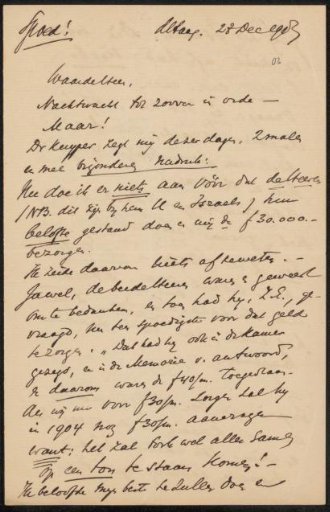 Spoed!
28 Dec 1903
03
Waarde heer,
Nachtwacht tot zoover in orde —
Maar!
Dr Kuyper zegt mij dezer dagen, 2 malen
en met bijzonderen nadruk:
Nu doe ik er niets aan vóór dat de Heeren
(NB. dit zijn bij hem U en Israels) hun
belofte gestand doen en mij de f 30.000.—
bezorgen.
Ik zeide daarvan niets af te weten. —
Jawel, de beide Heeren waren geweest
om te bedanken, en toen had hij, Z.E., ge-
vraagd, hun ten spoedigste voor dat geld
te zorgen. "Dat had hij ook in de Kamer
gezegd, en in de Memorie v. antwoord,
en daarom waren de f 40/m. toegestaan.
Als wij nu voor f 30/m. zorgen zal hij
in 1904 nog f 30/m. aanvragen
want: het zal toch wel alles samen
op een ton te staan komen! —
Ik beloofde mijn best te zullen doen en